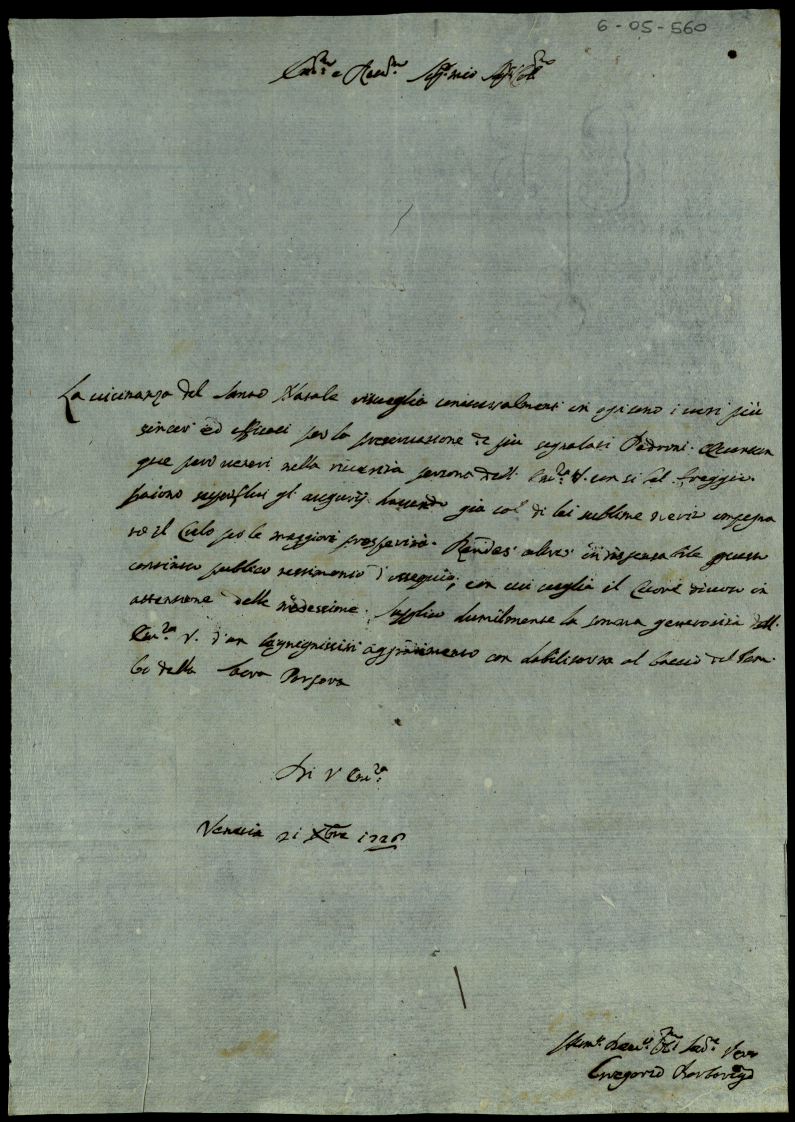 6-05-560
Em.mo e Rev.mo Sig.r mio Sig.r Col.mo
La vicinanza del Santo Natale risveglia universalmente in ogn'uno i voti più
sinceri ed efficaci per la preservazione de più segnalati Padroni.
que però nella persona dell' Em.za V. con si bel freggio
paiono superflui gl' augurij havendo già col di lei sublime merito impegna
to il Cielo per le maggiori prosperità. Rendesi altresi indispensabile questo
continuo publico testimonio d'ossequio, con cui veglia il Cuore divoto in
attenzione delle medesime. Supplico humilmente la somma generosità dell'
Em.za V. d'un benignissimo aggradimento con habilitarmi al baccio del Lem-
bo della Sacra Porpora
Di V Em.za
Venezia 21 Xbre 1726
Hum.o Devot.o Obl.mo Ser.re Vero
Gregorio Barbarigo